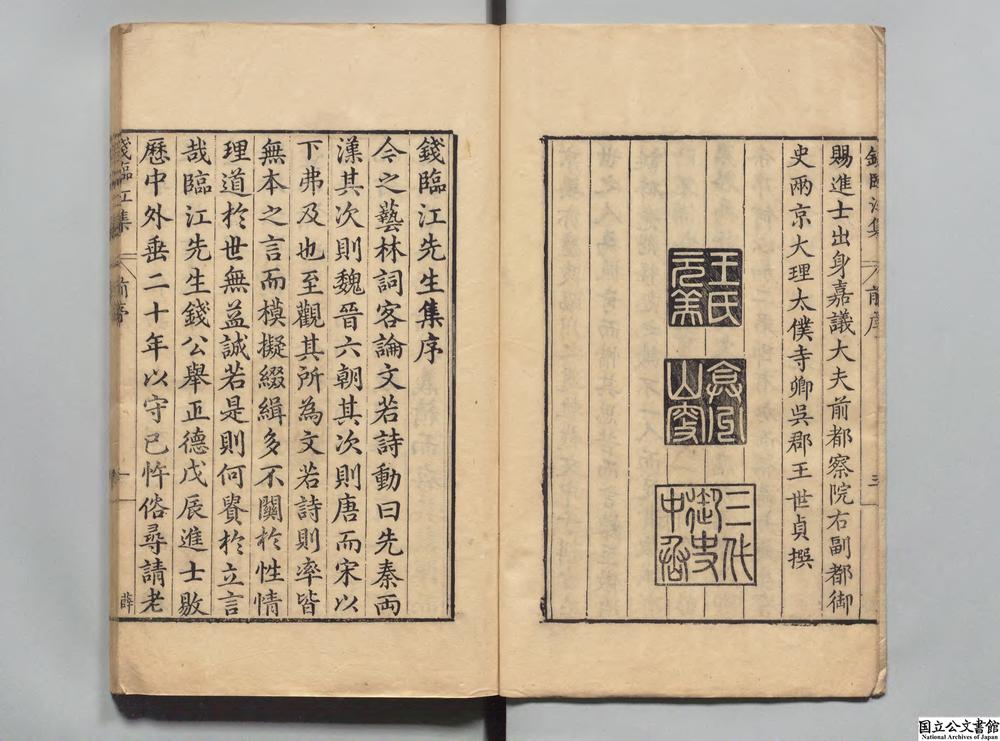 錢臨江集 前序 三
賜進士出身嘉議大夫前都察院右副都御
史兩京大理太僕寺卿吳郡王世貞撰
王氏
元美
三代
御史
中丞
錢臨江先生集序
今之藝林詞客論文若詩動曰先秦兩
漢其次則魏晉六朝其次則唐而宋以
下弗及也至觀其所為文若詩則率皆
無本之言而模擬綴緝多不關於性情
理道於世無益誠若是則何貴於立言
哉臨江先生錢公舉正德戊辰進士敭
歷中外垂二十年以守己忤俗尋請老
錢臨江集 前序 一 薛
国立公文書館
National Archives of Japan